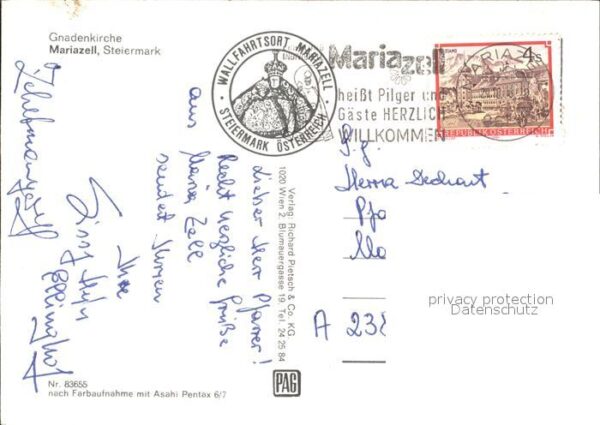 Gnadenkirche
Mariazell, Steiermark
WALLFAHRTSORT MARIAZELL
STEIERMARK ÖSTERREICH
Mariazell
heißt Pilger und
Gäste HERZLICH
WILLKOMMEN
STAMS
4 S
REPUBLIK ÖSTERREICH
MARIAZ
Lieber Herr Pfarrer!
Recht herzliche Grüße
aus
Maria Zell
sendet Ihnen
Ihre
Herrn Dechant
Pfa
Ma
A 232
privacy protection
Datenschutz
Verlag: Richard Pietsch & Co. KG.
1020 Wien 2, Blumauergasse 19, Tel. 24 25 84
PAG
Nr. 83655
nach Farbaufnahme mit Asahi Pentax 6/7